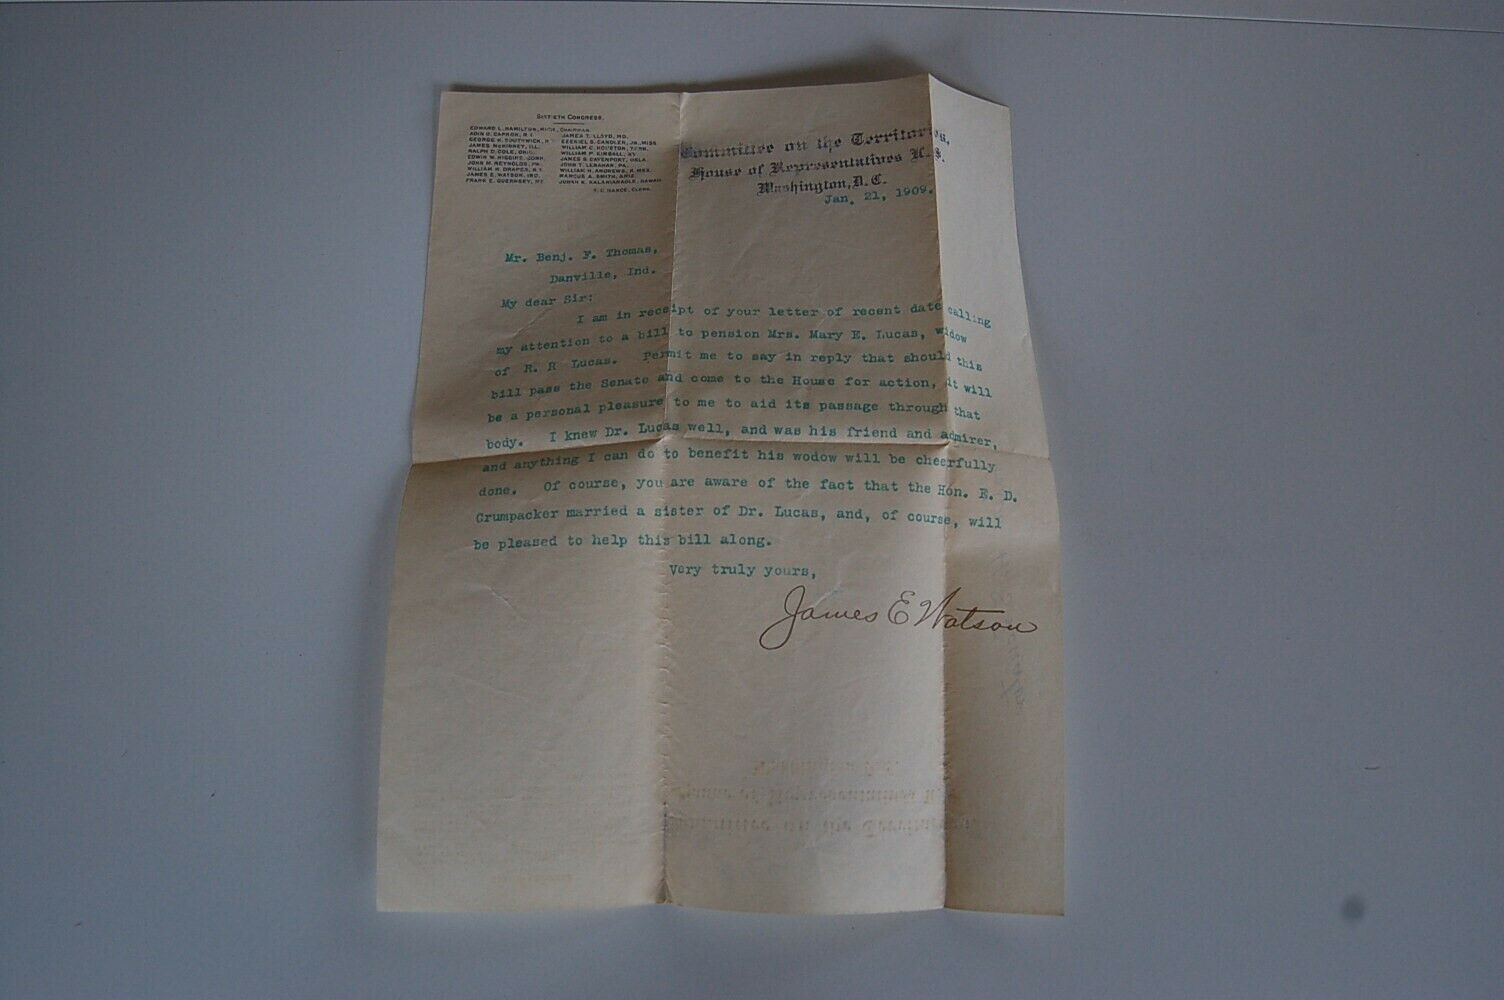 SIXTIETH CONGRESS.
EDWARD L. HAMILTON, MICH., CHAIRMAN.
ADIN B. CAPRON, R. I.
GEORGE N. SOUTHWICK, N. Y.
JAMES McKINNEY, ILL.
RALPH D. COLE, OHIO.
EDWIN W. HIGGINS, CONN.
JOHN M. REYNOLDS, PA.
WILLIAM H. DRAPER, N. Y.
JAMES E. WATSON, IND.
FRANK E. GUERNSEY, ME.
JAMES T. LLOYD, MO.
EZEKIEL S. CANDLER, JR., MISS.
WILLIAM C. HOUSTON, TENN.
WILLIAM P. KIMBALL, KY.
JAMES S. DAVENPORT, OKLA.
JOHN T. LENAHAN, PA.
WILLIAM H. ANDREWS, N. MEX.
MARCUS A. SMITH, ARIZ.
JONAH K. KALANIANAOLE, HAWAII.
CLERK.
Committee on the Territories,
House of Representatives U.S.
Washington, D.C.
Jan. 21, 1909.
Mr. Benj. F. Thomas,
Danville, Ind.
My dear Sir:
I am in receipt of your letter of recent date calling
my attention to a bill to pension Mrs. Mary E. Lucas, widow
of R. R Lucas. Permit me to say in reply that should this
bill pass the Senate and come to the House for action, it will
be a personal pleasure to me to aid its passage through that
body. I knew Dr. Lucas well, and was his friend and admirer,
and anything I can do to benefit his wodow will be cheerfully
done. Of course, you are aware of the fact that the Hon. E. D.
Crumpacker married a sister of Dr. Lucas, and, of course, will
be pleased to help this bill along.
Very truly yours,
James E Watson